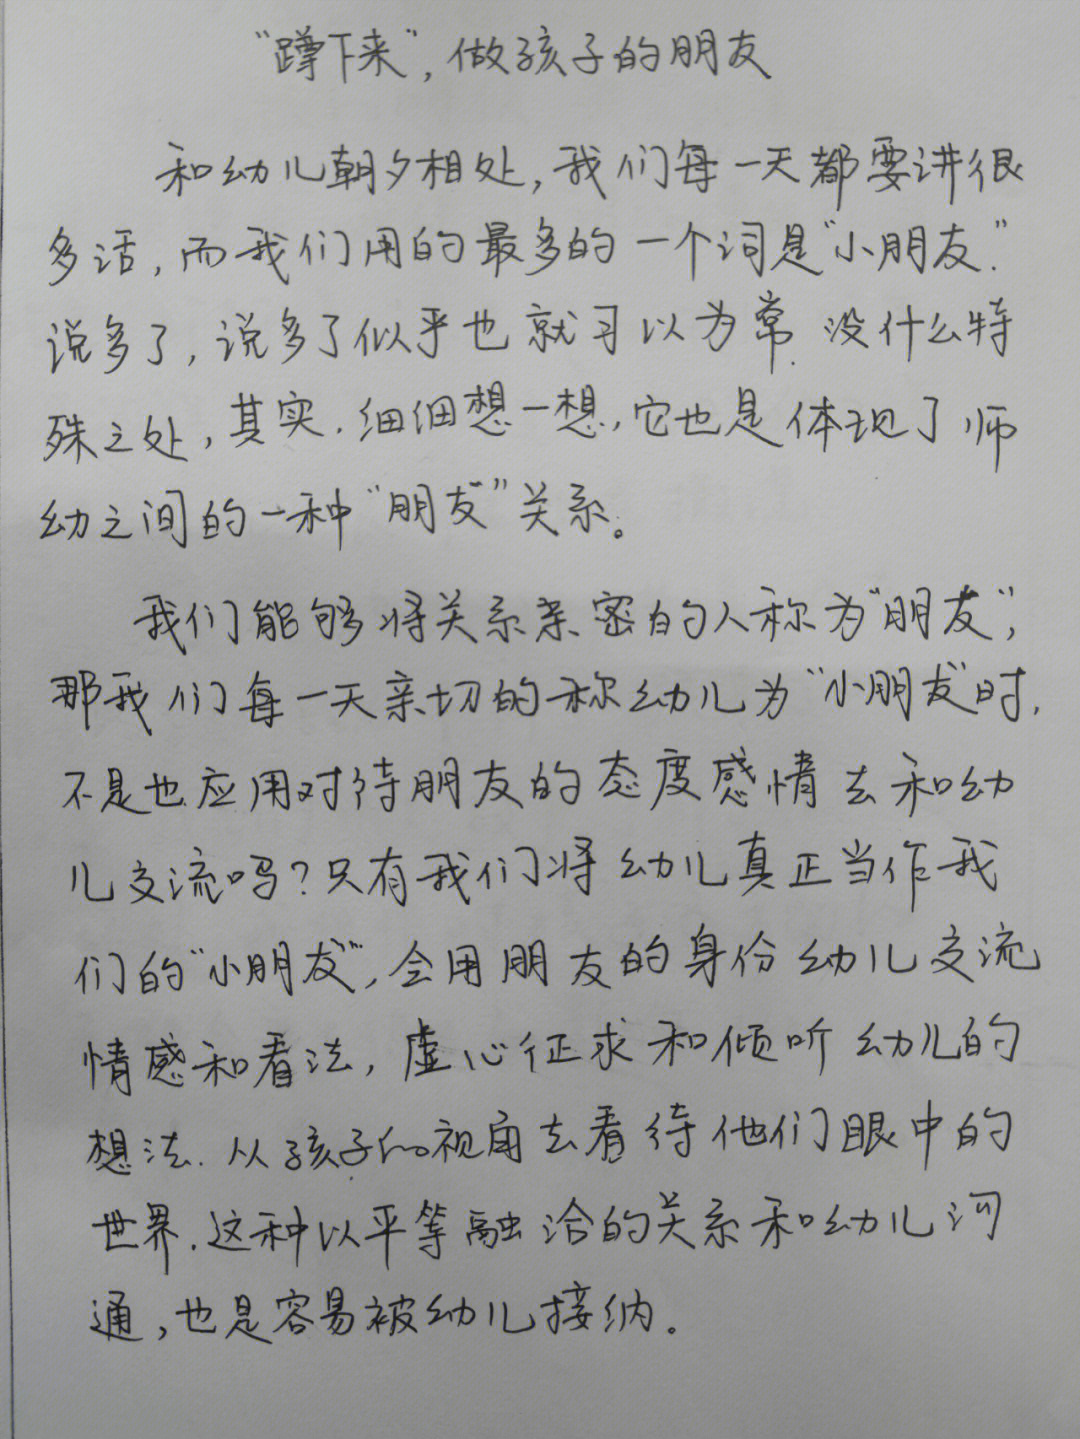 “蹲下来”，做孩子的朋友
和幼儿朝夕相处，我们每一天都要讲很
多话，而我们用的最多的一个词是“小朋友”.
说多了，说多了似乎也就习以为常.没什么特
殊之处，其实.细细想一想，它也是体现了师
幼之间的一种“朋友”关系。
我们能够将关系亲密的人称为“朋友”，
那我们每一天亲切的称幼儿为“小朋友”时，
不是也应用对待朋友的态度感情去和幼
儿交流吗？只有我们将幼儿真正当作我
们的“小朋友”，会用朋友的身份幼儿交流
情感和看法，虚心征求和倾听幼儿的
想法.从孩子的视角去看待他们眼中的
世界.这种以平等融洽的关系和幼儿沟
通，也是容易被幼儿接纳。